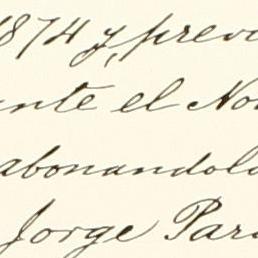 1874 y, previ
ante el No
abonandola
Jorge Par